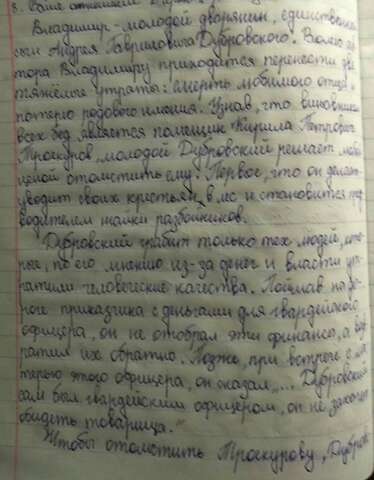 3. Ваше отношение
Владимир - молодой дворянин, единственный
сын Андрея Гавриловича Дубровского. Волею ав-
тора Владимиру приходится перенести две
тяжёлые утраты: смерть любимого отца и
потерю родового имения. Узнав, что виновником
всех бед является помещик Кирила Петрович
Троекуров, молодой Дубровский решает любой
ценой отомстить ему. Первое, что он делает -
уводит своих крестьян в лес и становится пред-
водителем шайки разбойников.
Дубровский грабит только тех людей, кото-
рые, по его мнению из-за денег и власти ут-
ратили человеческие качества. Поймав на до-
роге приказчика с деньгами для гвардейского
офицера, он не отобрал эти финансы, а воз-
вратил их обратно. Позже, при встрече с ма-
терью этого офицера, он сказал „... Дубровский
сам был гвардейским офицером, он не захочет
обидеть товарища."
Чтобы отомстить Троекурову, Дубров-